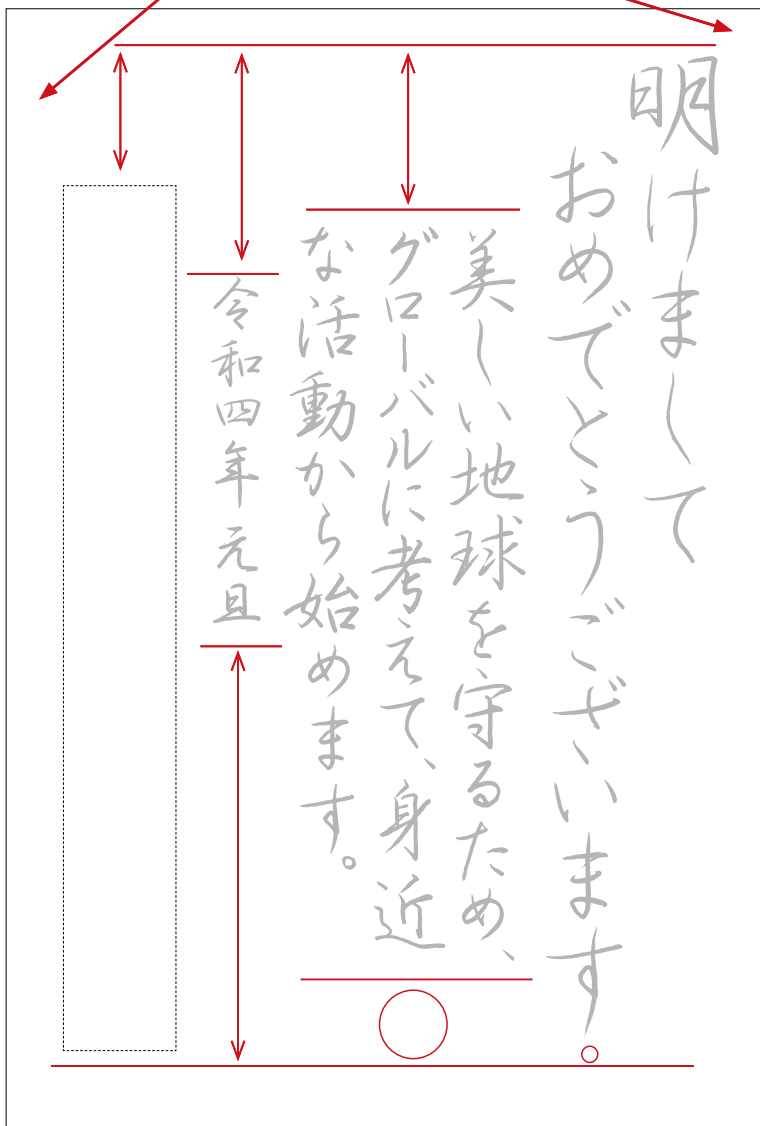 明けまして
おめでとうございます
美しい地球を守るため、
グローバルに考えて、身近
な活動から始めます。
令和四年元旦